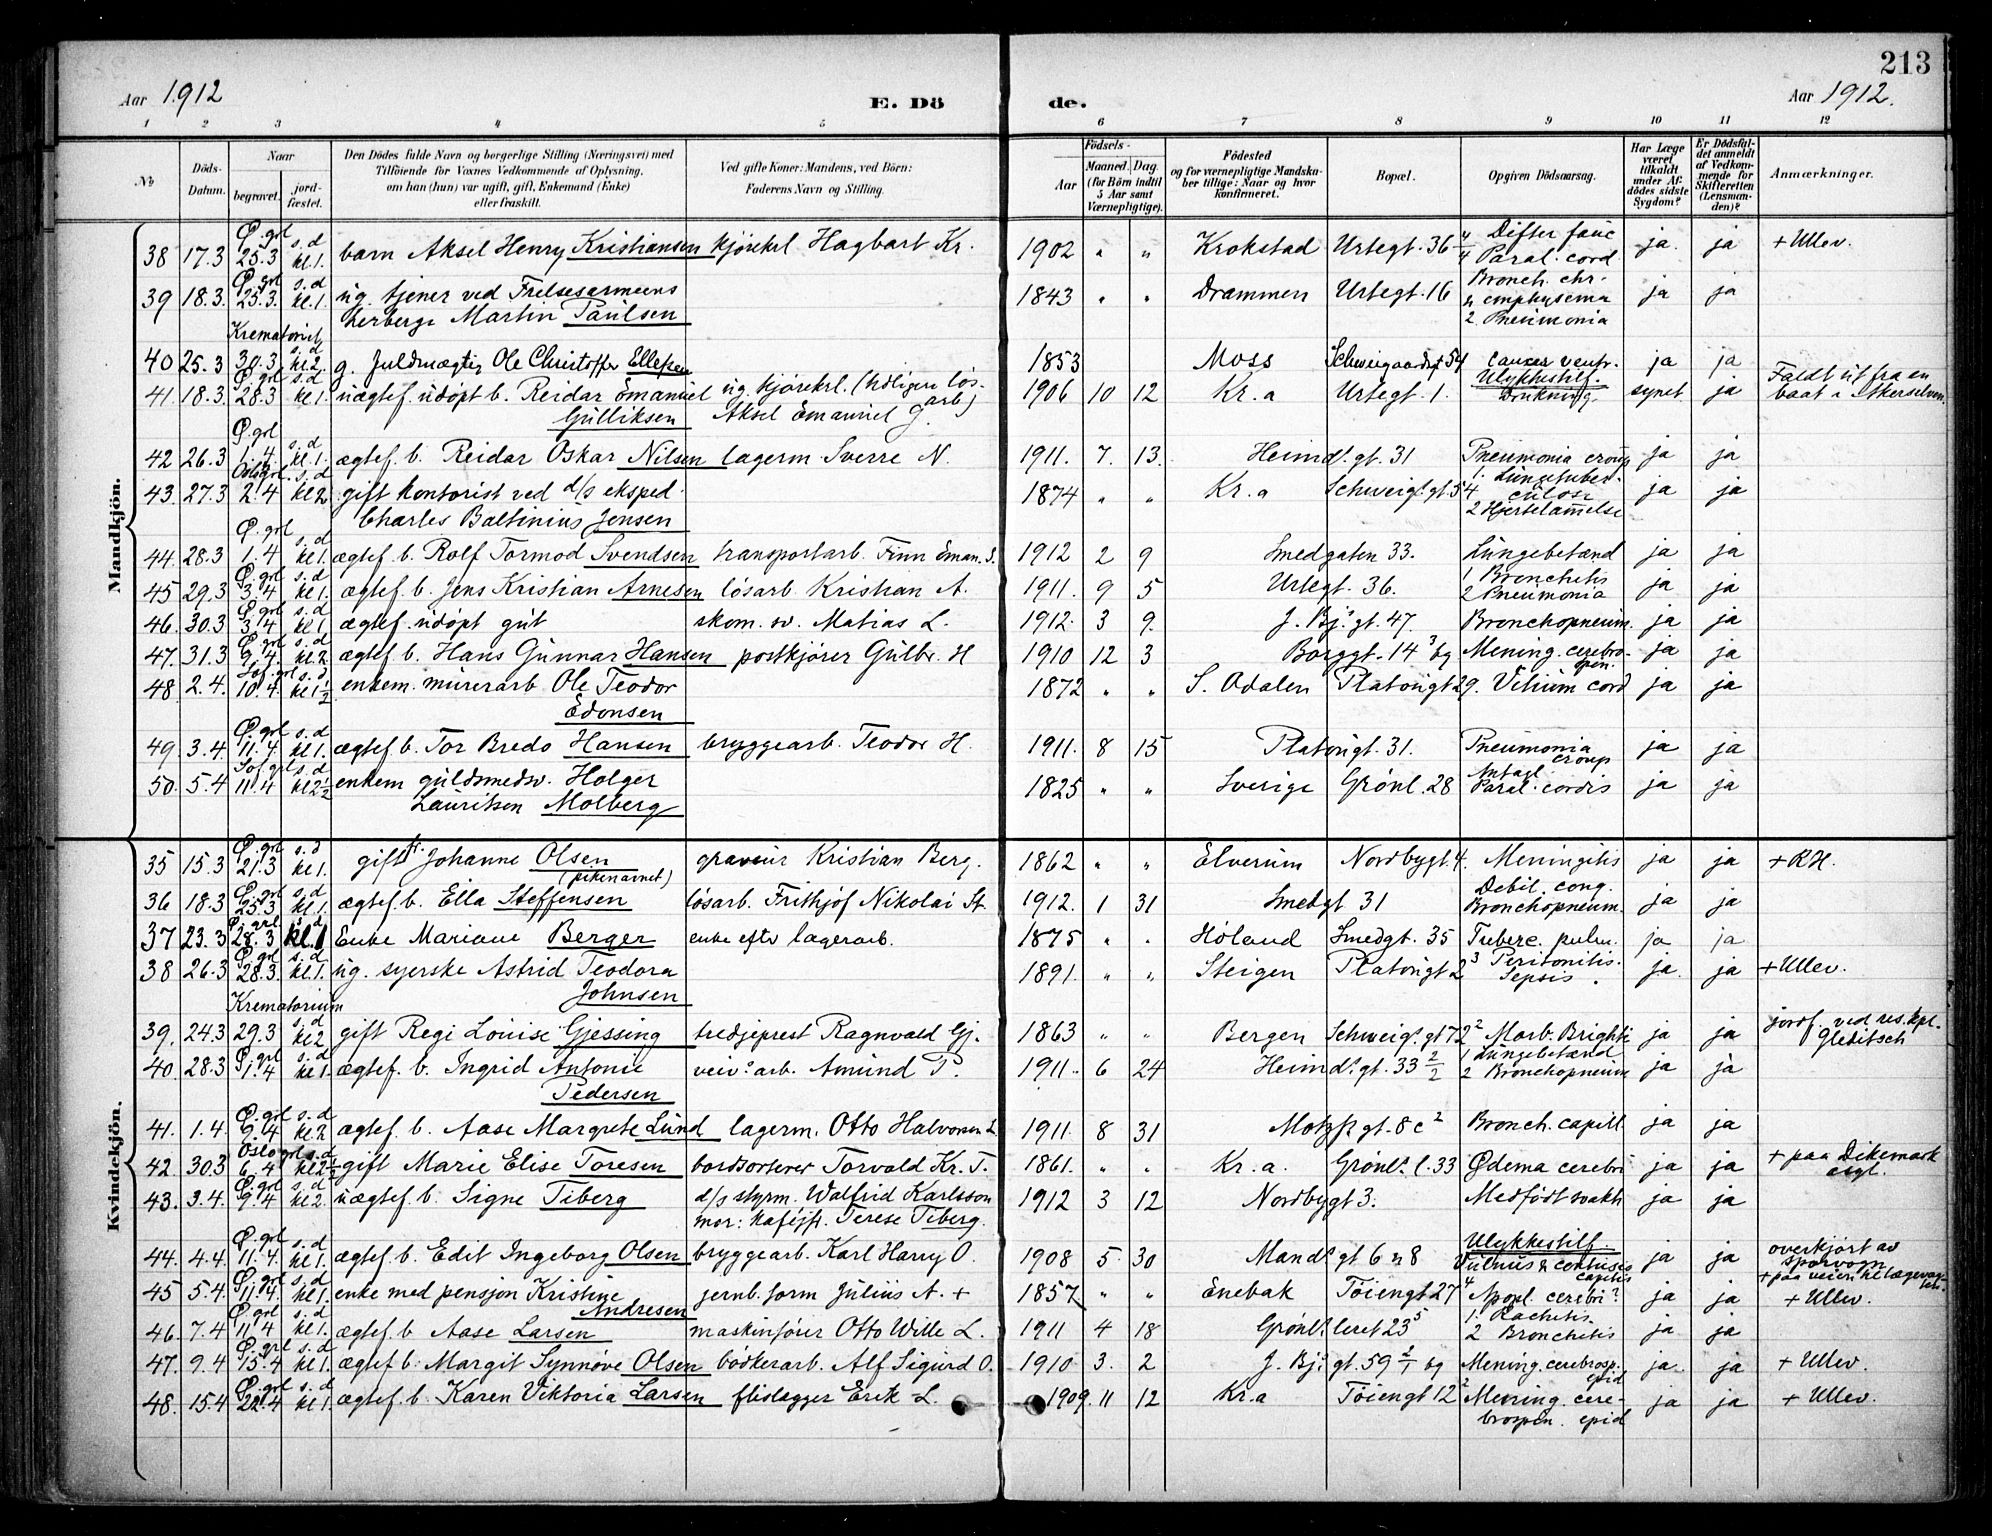 213
Aar 1912 E. Dö de. Aar 1912.
1 2 3 4 5 6 7 8 9 10 11 12
No
Döds-Datum.
Naar begravet. jordfæstet.
Den Dödes fulde Navn og borgerlige Stilling (Næringsvei) med Tilföiende for Voxnes Vedkommende af Oplysning, om han (hun) var ugift, gift, Enkemand (Enke) eller fraskilt.
Ved gifte Koner: Mandens, ved Börn: Faderens Navn og Stilling.
Födsels- Aar Maaned. Dag. (for Börn indtil 5 Aar samt Værnepligtige).
Födested og for værnepligtige Mandskaber tillige: Naar og hvor konfirmeret.
Bopæl.
Opgiven Dödsaarsag.
Har Læge været tilkaldt under Afdödes sidste Sygdom?
Er Dödsfaldet anmeldt af Vedkommende for Skifteretten (Lensmanden)?
Anmærkninger.
Mandkjön.
38 17.3 Ø. grl 25.3 s. d kl. 1. barn Aksel Henry Kristiansen kjørekrl Hagbart Kr. 1902 " " Krokstad Urtegt. 36 4/4 Difter fauc Paral. cord ja. ja + Ullev.
39 18.3. Ø. grl 25.3. s. d kl. 1. ug. tjener ved Frelsesarmeens herberge Martin Paulsen 1843 " " Drammen Urtegt. 16 Bronch. chr. & emphysema 2. Pneumonia ja ja
40 25.3 Krematoriet 30.3 s. d kl. 2. g. fuldmægtig Ole Christoffer Ellefsen 1853 Moss Schweigaardsgt 54 cancer ventr. ja ja
41. 18.3. Ø. grl 28.3 s. d kl. 1. uægtef. udøpt b. Reidar Emanuel Gulliksen ug. kjørekrl. (tidligere løsarb) Aksel Emanuel G. 1906 10 12 Kr. a Urtegt. 1. Ulykkestilf. Drukning synet ja Faldt ut fra en baat i Akerselven.
42 26.3 Ø. grl 1. 4 s. d kl. 1. ægtef. b. Reidar Oskar Nilsen lagerm Sverre N 1911. 7. 13. Heimds. gt. 31 Pneumonia croup ja ja
43. 27.3 Oslo grl. 2. 4 s. d kl. 2 gift kontorist ved d/s eksped. Charles Baltinius Jensen 1874 " " Kr. a Schweigs. gt. 54 1. Lungetuberculose 2 Hjertelammelse ja ja
44. 28.3 Ø. grl 1. 4 s. d kl. 1. ægtef. b. Rolf Tormod Svendsen transportarb. Finn Eman. S. 1912 2 9 Smedgaten 33. Lungebetænd ja ja
45 29.3 Ø. grl 3. 4 s. d kl. 1. ægtef. b. Jens Kristian Arnesen løsarb. Kristian A. 1911. 9 5 Urtegt. 36. 1 Bronchitis 2 Pneumonia ja ja
46. 30.3 Ø. grl 3. 4 s. d kl. 1. ægtef. udøpt gut skom. sv. Matias L. 1912. 3 9. J. Bj.s gt. 47. Bronchopneum. ja ja
47. 31.3 Ø. grl 9. 4. s. d kl. 2 ægtef. b. Hans Gunnar Hansen postkjører Gulbr. H 1910 12 3 Borggt. 14 3 bg Mening. cerebrospin. ja ja
48. 2.4. Sof. grl 10. 4. s. d kl 1½ enkem. murerarb Ole Teodor Edonsen 1872 " " S. Odalen Platousgt 29. Vitium cord ja ja
49. 3.4. Ø. grl 11. 4 s. d kl. 1. ægtef. b. Tor Bredo Hansen bryggearb. Teodor H. 1911. 8 15 Platousgt. 31. Pneumonia croup ja ja
50. 5.4 Sof. grl 11. 4 s. d kl 2½ enkem guldsmedsv. Holger Lauritsen Molberg 1825 " " Sverige Grønl. 28 Antagl. Paral. cordis ja ja
Kvindekjön.
35 15.3 Ø. grl 21.3 s. d kl 1. gift fr. Johanne Olsen (pikenavnet) graveur Kristian Berg. 1862 " " Elverum Nordbygt. 4. Meningitis ja ja + RH.
36 18.3 Ø. grl 25.3 s. d kl. 1. ægtef. b. Ella Steffensen løsarb. Frithjof Nikolai St. 1912. 1 31 Smedgt 31 Debil. cong. Bronchopneum. ja ja
37 23.3 Ø. grl 28.3 s. d kl. 1 Enke Mariane Berger enke eftr lagerarb. 1875 " " Høland Smedgt. 35 Tuberc. pulm. ja ja
38 26.3 Ø. grl 28.3. s. d kl. 1. ug. syerske Astrid Teodora Johnsen 1891. " " Steigen Platousgt 2 3 Peritonitis. Sepsis ja. ja + Ullev.
39. 24.3 Krematorium 29.3 s. d kl 2 gift Regi Louise Gjessing tredjeprest Ragnvald Gj. 1863 " " Bergen Schweigs. gt 72 2 Morb. Brighti ja ja jordf. ved res. kpl. Gleditsch
40. 28.3 Ø. grl 1. 4 s. d kl 1. ægtef. b. Ingrid Antonie Pedersen veivs. arb. Amund P. 1911. 6 24 Heimds. gt. 33 2/2 1 Lungebetænd 2 Bronchopneum ja ja
41. 1.4. Ø. grl 9. 4 s. d kl. 2 ægtef. b. Aase Margrete Lund lagerm. Otto Halvorsen L. 1911. 8 31 Motzfs gt. 8 c 2 Bronch. capill ja ja
42 30.3 Oslo grl 6. 4 s. d kl 2½ gift Marie Elise Toresen bordsorterer Torvald Kr. T. 1861. " " Kr. a. Grønls. l. 33 Ødema cerebri ja ja + paa Dikemark asyl.
43. 3.4. Ø. grl 9. 4 s. d kl 2. uægtef. b. Signe Tiberg d/s styrm. Walfrid Karlsson mor: kaféjfr. Terese Tiberg. 1912 3 12 Nordbygt 3. Medfødt svakh ja ja
44. 4.4. Ø. grl 11. 4. s. d kl 1. ægtef. b. Edit Ingeborg Olsen bryggearb. Karl Harry O. 1908 5 30 Mands. gt 6 & 8 Ulykkestilf. Vulnus & contusio capitis ja ja overkjørt av sporvogn + paa veien til lægevagten.
45 5.4. Ø. grl 11. 4. s. d kl. 1. enke med pensjon Kristine Andresen jernb. form Julius A. + 1857 " " Enebak Tøiengt 27 4 Apopl. cerebri? ja ja + Ullev.
46. 7.4 Ø. grl 11. 4 s. d kl 1. ægtef. b Aase Larsen maskinfører Otto Wille L. 1911 4 18 Grønls. leret 23 5 1. Rachitis. 2 Bronchitis ja ja
47. 9.4 Ø. grl 15. 4 s. d kl 1. ægtef. b. Margit Synnøve Olsen bødkerarb. Alf Sigurd O. 1910 3. 2 J. Bj.s gt. 59 2/1 bg Mening. cerebrosp. epid ja. ja + Ullev.
48. 15.4 Ø. grl 22. 4 s. d kl 1. ægtef. b. Karen Viktoria Larsen flislægger Erik L. 1909. 11 12 Kr. a Tøiengt 12 2 Mening. cerebrospin. epid ja ja + Ullev.